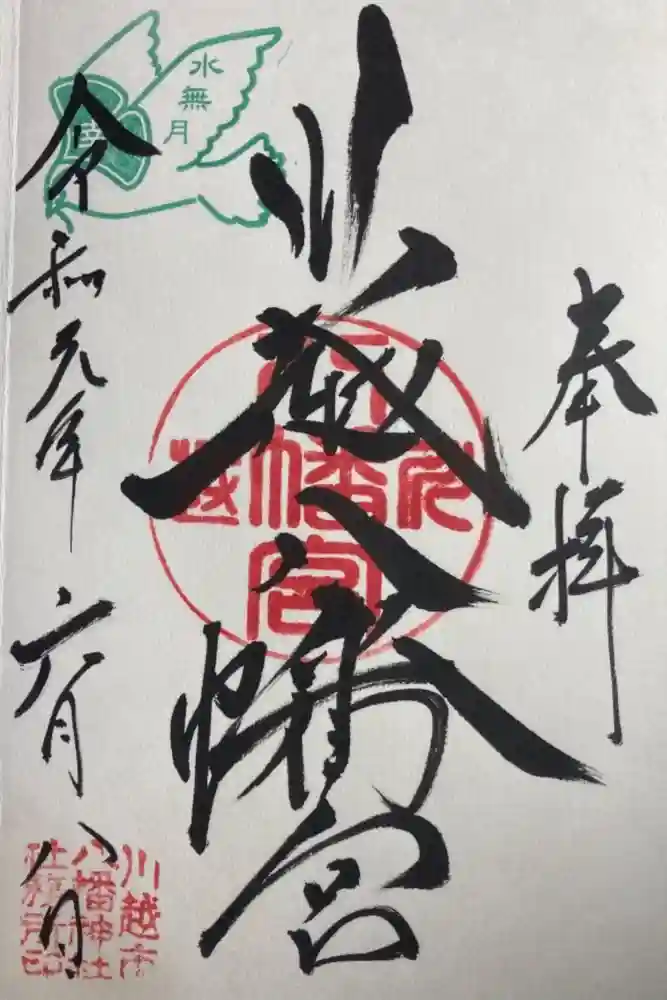 奉拝
川越八幡宮
川越
八幡宮
水無月
幸
令和元年六月八日
川越市
八幡神社
社務所印